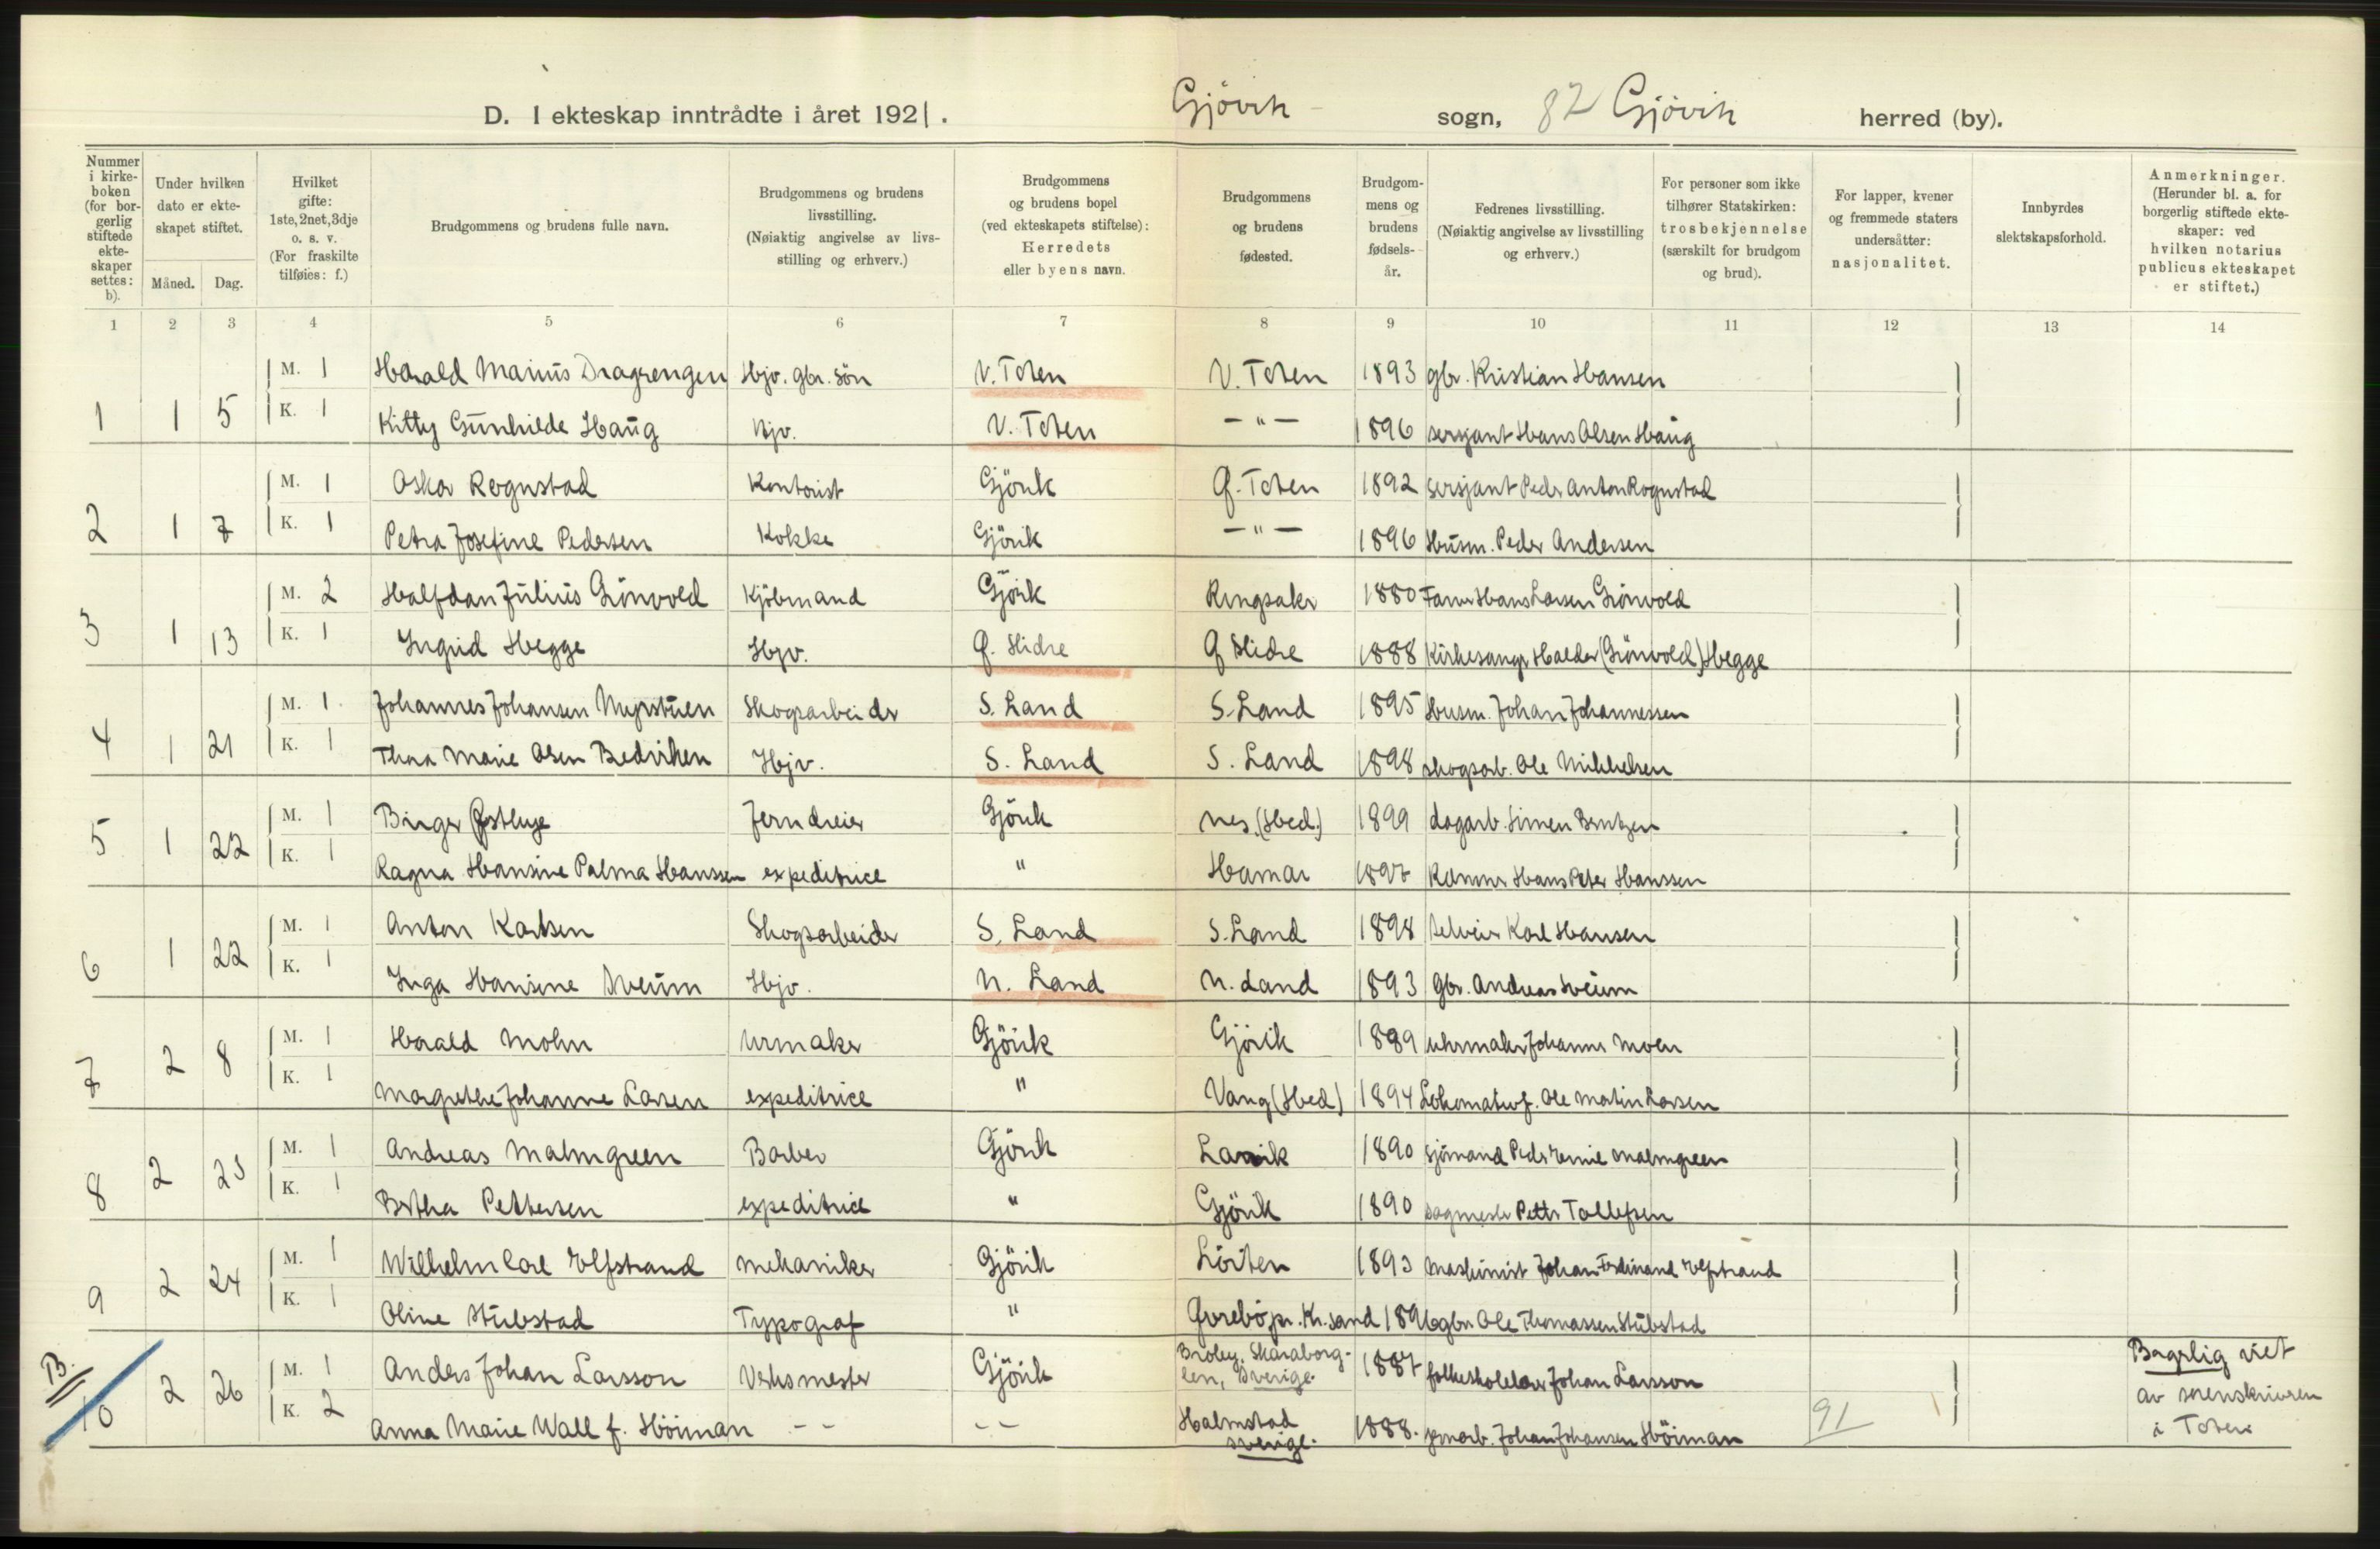 D. I ekteskap inntrådte i året 1921. Gjövik sogn, 82 Gjövik herred (by).
Nummer i kirkeboken (for borgerlig stiftede ekteskaper settes: b).
Under hvilken dato er ekteskapet stiftet.
Måned. Dag.
Hvilket gifte: 1ste, 2net, 3dje o. s. v. (For fraskilte tilføies: f.)
Brudgommens og brudens fulle navn.
Brudgommens og brudens livsstilling. (Nøiaktig angivelse av livsstilling og erhverv.)
Brudgommens og brudens bopel (ved ekteskapets stiftelse): Herredets eller byens navn.
Brudgommens og brudens fødested.
Brudgommens og brudens fødselsår.
Fedrenes livsstilling. (Nøiaktig angivelse av livsstilling og erhverv.)
For personer som ikke tilhører Statskirken: trosbekjennelse (særskilt for brudgom og brud).
For lapper, kvener og fremmede staters undersåtter: nasjonalitet.
Innbyrdes slektskapsforhold.
Anmerkninger. (Herunder bl. a. for borgerlig stiftede ekteskaper: ved hvilken notarius publicus ekteskapet er stiftet.)
1 2 3 4 5 6 7 8 9 10 11 12 13 14
M. 1 Harald Marius Dragrengen Hjv. gbr. sön V. Toten V. Toten 1893 gbr. Kristian Hansen
1 1 5 K. 1 Kitty Gunhilde Haug Hjv. V. Toten —"— 1896 sersjant Hans Olsen Haug
M. 1 Oskar Rognstad Kontorist Gjövik Ø. Toten 1892 sersjant Peder Anton Rognstad
2 1 7 K. 1 Petra Josefine Pedersen Kokke Gjövik —"— 1896 Husm. Peder Andersen
M. 2 Halfdan Julius Grönvold Kjöbmand Gjövik Ringsaker 1880 Farver Hans Larsen Grönvold
3 1 13 K. 1 Ingrid Hegge Hjv. Ø. Slidre Ø Slidre 1888 Kirkesanger Haldor (Grönvold) Hegge
M. 1 Johannes Johansen Myrstuen Skogsarbeider S. Land S. Land 1895 Husm. Johan Johannessen
4 1 21 K. 1 Thora Marie Olsen Bedviken Hjv. S. Land S. Land 1898 skogsarb. Ole Mikkelsen
M. 1 Birger Østhuge Jerndreier Gjövik Nes (Hed.) 1899 dagarb. Simen Berntzen
5 1 22 K. 1 Ragna Hansine Palma Hanssen expeditrice " Hamar 1897 Hans Peter Hanssen
M. 1 Anton Karlsen Skogsarbeider S. Land S. Land 1898 selveier Karl Hansen
6 1 22 K. 1 Inga Hansine Sveum Hjv. N. Land N. Land 1893 Gbr. Andreas Sveum
M. 1 Harald Mohn Urmaker Gjövik Gjövik 1889 uhrmaker Johannes Moen
7 2 8 K. 1 Magrethe Johanne Larsen expeditrice " Vang (Hed) 1894 Lokomotivf. Ole Martin Larsen
M. 1 Andreas Malmgreen Barber Gjövik Larvik 1890 Sjömand Peder Malmgreen
8 2 23 K. 1 Bertha Pettersen expeditrice " Gjövik 1890 sagmester Petter Tollefsen
M. 1 Wilhelm Carl Elfstrand mekaniker Gjövik Löiten 1893 Maskinist Johan Ferdinand Elfstrand
9 2 24 K. 1 Oline Stubstad Typograf " Øvrebö pr. Kr.sand 1896 gbr. Ole Thomassen Stubstad
B. M. 1 Anders Johan Larsson Verksmester Gjövik Broby, Skaraborglen, Sverige. 1887 folkeskolelærer Johan Larsson Borgerlig viet
10 2 26 K. 2 Anna Marie Wall f. Höiman - - - - Halmstad Sverige. 1888. jernarb. Johan Johansen Höiman 91 av sorenskriveren
i Toten.